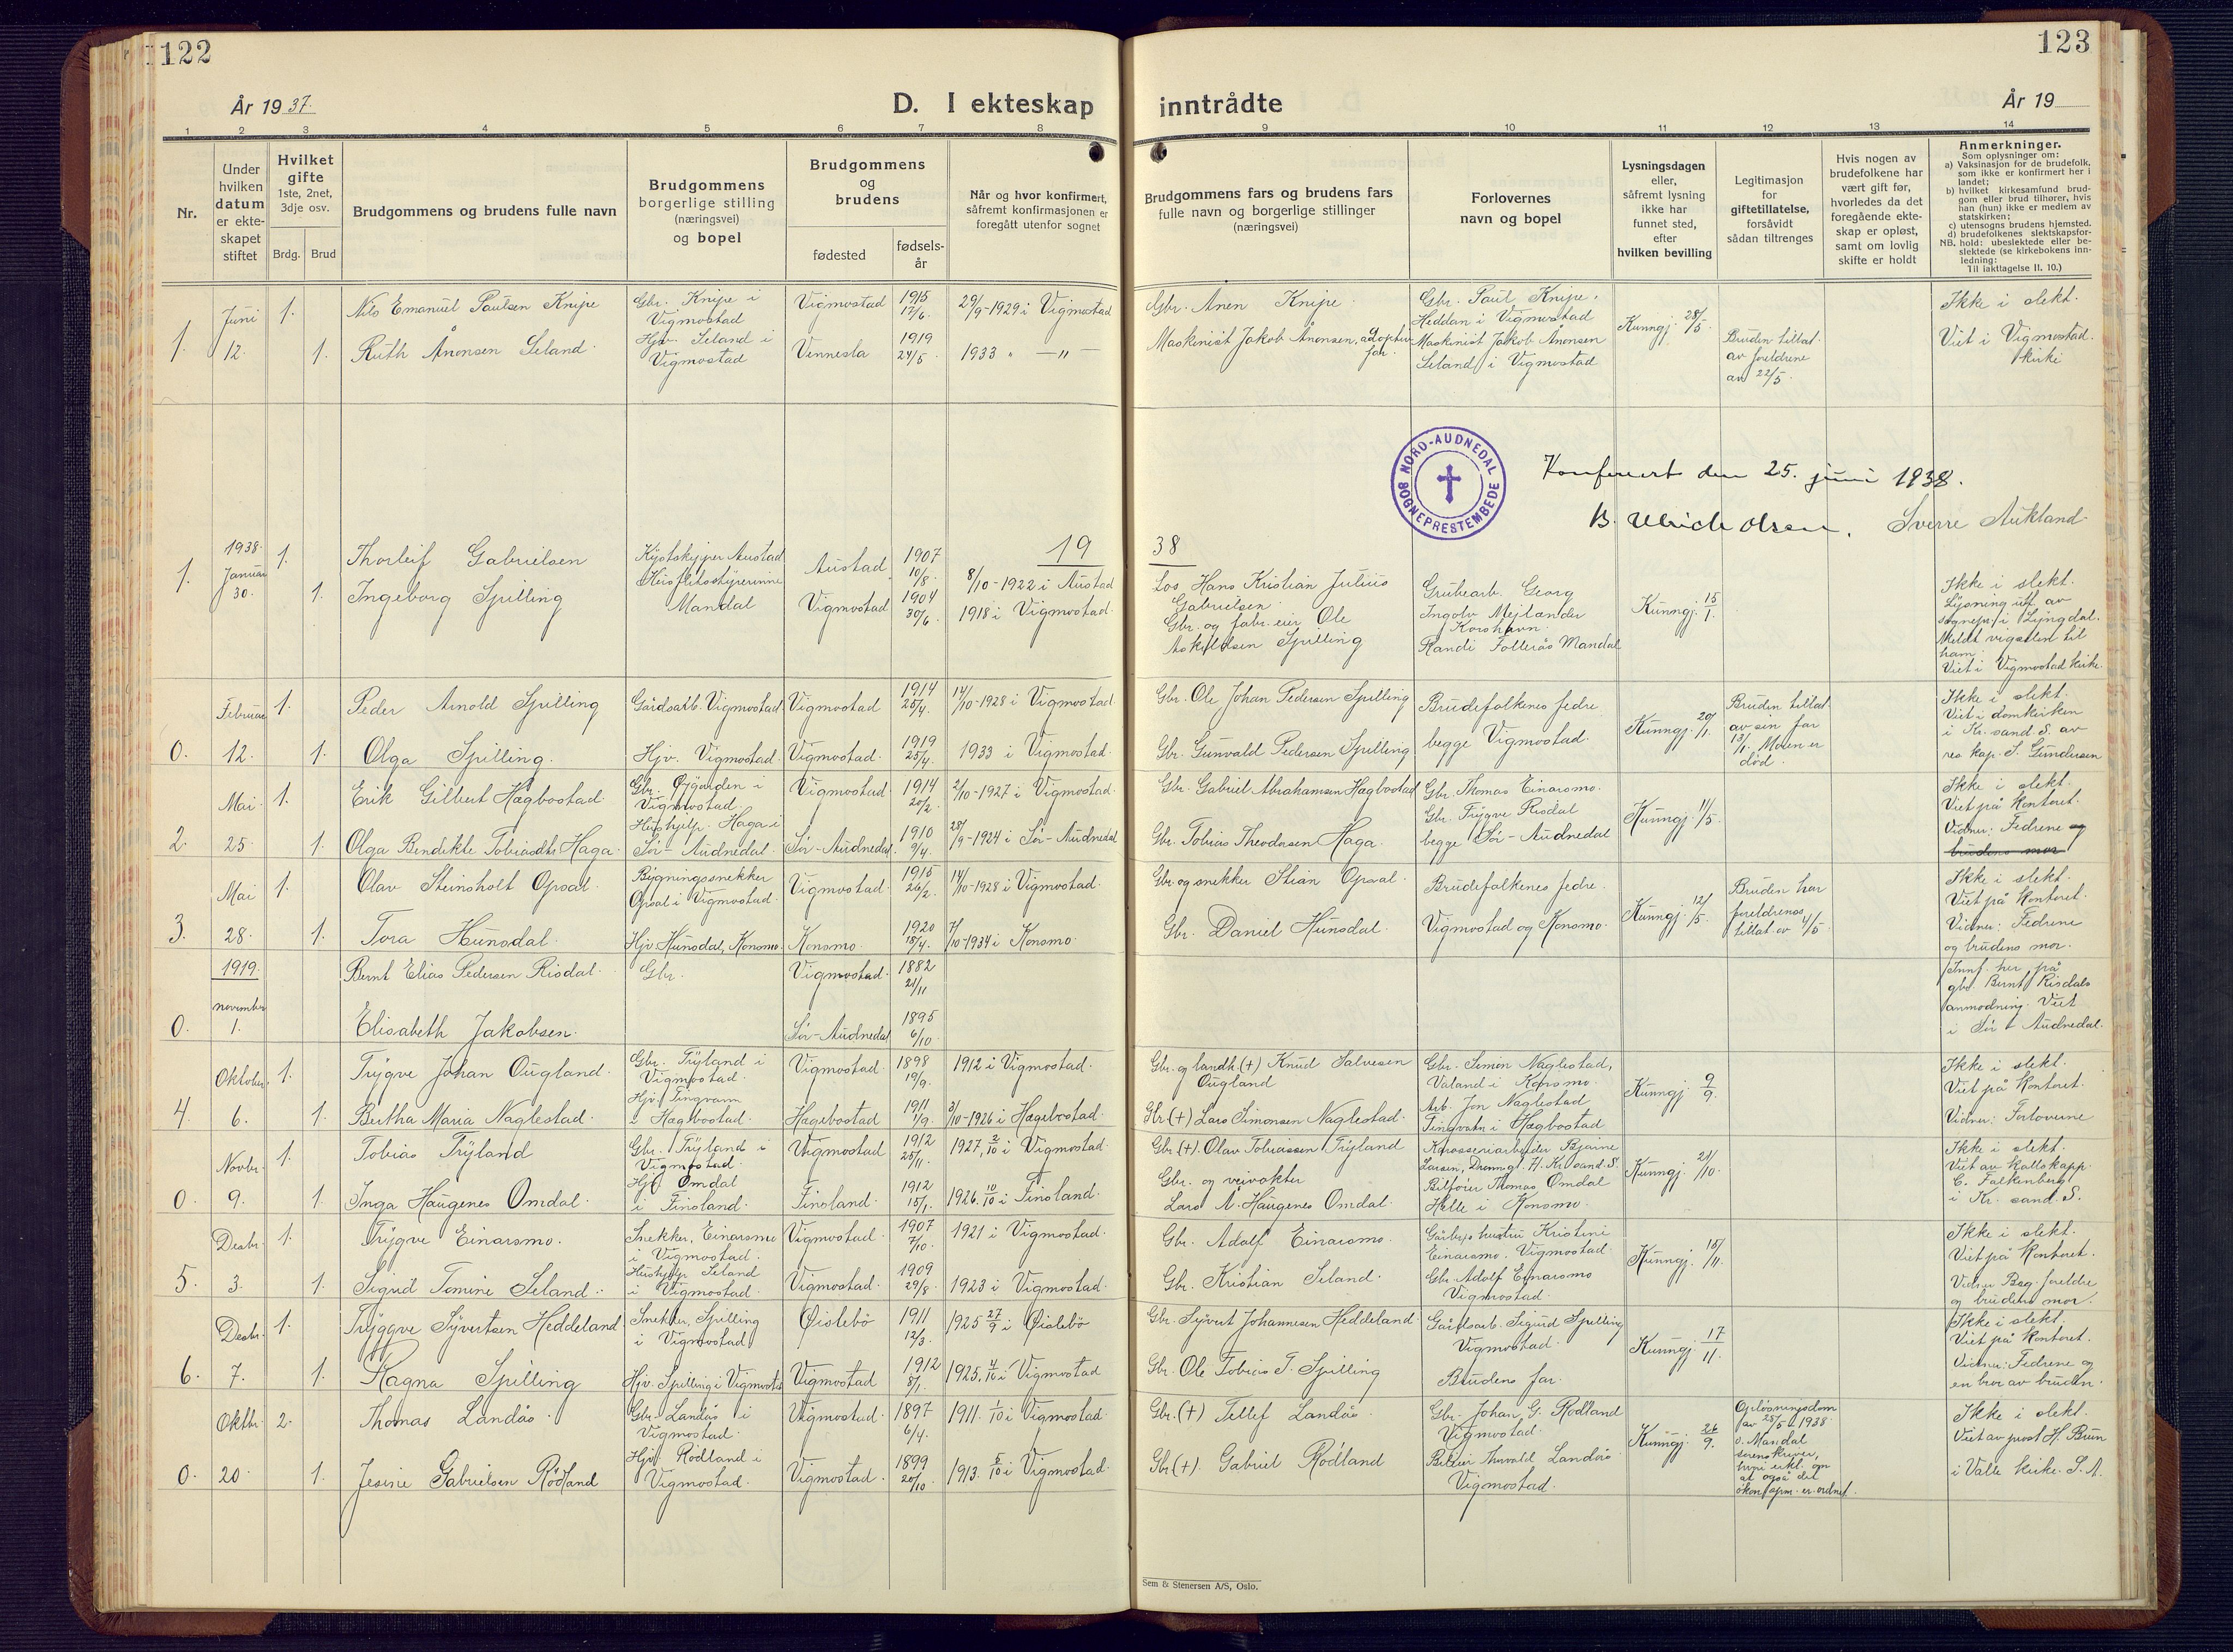 122
123
År 1937.
D. I ekteskap
inntrådte
År 19
1 2 3 4 5 6 7 8 9 10 11 12 13 14
Nr.
Under
hvilken
datum
er ekte-
skapet
stiftet
Hvilket
gifte
1ste, 2net,
3dje osv.
Brdg. Brud
Brudgommens og brudens fulle navn
Brudgommens
borgerlige stilling
(næringsvei)
og bopel
Brudgommens
og
brudens
fødested
fødsels-
år
Når og hvor konfirmert,
såfremt konfirmasjonen er
foregått utenfor sognet
Brudgommens fars og brudens fars
fulle navn og borgerlige stillinger
(næringsvei)
Forlovernes
navn og bopel
Lysningsdagen
eller,
såfremt lysning
ikke har
funnet sted,
efter
hvilken bevilling
Legitimasjon
for
giftetillatelse,
forsåvidt
sådan tiltrenges
Hvis nogen av
brudefolkene har
vært gift før,
hvorledes da det
foregående ekte-
skap er opløst,
samt om lovlig
skifte er holdt
Anmerkninger.
Som oplysninger om:
a) Vaksinasjon for de brudefolk,
som ikke er konfirmert her i
landet;
b) hvilket kirkesamfund brud-
gom eller brud tilhører, hvis
han (hun) ikke er medlem av
statskirken;
c) utensogns brudens hjemsted.
d) brudefolkenes slektskapsfor-
NB. hold: ubeslektede eller be-
slektede (se kirkebokens inn-
ledning:
Til iakttagelse II. 10.)
1.
Juni
12.
1.
Nils Emanuel Paulsen Knipe
Gbr. Knipe i
Vigmostad
Vigmostad
1915
17/6.
29/9-1929 i Vigmostad
Gbr. Anen Knipe.
Gbr. Paul Knipe.
Heddan i Vigmostad
Kunngj. 28/5.
Ikke i slekt.
1.
Ruth Ånonsen Seland.
Hjv. Seland i
Vigmostad
Vennesla
1919
24/5
1933 " —"
Maskinist Jakob Ånonsen, adoptiv
far.
Maskinist Jakob Ånonsen
Seland i Vigmostad
Bruden tillat.
av foreldrene
av 22/5.
Viet i Vigmostad
kirke
NORD-AUDNEDAL
SOGNEPRESTEMBEDE
Konferert den 25. juni 1938.
B. Ulrich Olsen. Sverre Aukland
19 38
1.
1938.
Januar
30.
1.
Thorleif Gabrielsen
Kystskipper Austad
Austad
1907
10/8.
8/10-1922 i Austad
Los Hans Kristian Julius
Gabrielsen.
Grubearb. Georg
Ingolv Mejlænder
Korshavn.
Kunngj. 15/1.
1.
Ingeborg Spilling
Husflitsstyrerinne
Mandal
Vigmostad
1904
30/6
1918 i Vigmostad.
Gbr. og fabr.eier Ole
Askildsen Spilling
Randi Follerås Mandal
Ikke i slekt.
Lysning utf. av
sognepr. i Lyngdal.
Meldt vigselen til
ham.
Viet i Vigmostad kirke.
0.
Februar
12.
1.
Peder Arnold Spilling
Gårdsarb. Vigmostad
Vigmostad
1914
25/4.
14/10-1928 i Vigmostad.
Gbr. Ole Johan Pedersen Spilling
Brudefolkenes fedre
begge Vigmostad.
Kunngj. 20/1.
1.
Olga Spilling.
Hjv. Vigmostad.
Vigmostad.
1919
25/4
1933 i Vigmostad.
Gbr. Gunvald Pedersen Spilling
Bruden tillat
av sin far
13/1. Moren er
død.
Ikke i slekt.
Viet i domkirken
i Kr.sand S. av
res kap. S. Gundersen
2.
Mai
25.
1.
Erik Gilbert Hægbostad.
Gbr. Øygarden i
Vigmostad.
Vigmostad.
1914
20/2.
2/10-1927 i Vigmostad.
Gbr. Gabriel Abrahamsen Hægbostad
Gbr. Thomas Einarsmo.
Gbr. Trygve Risdal
begge Sør-Audnedal
Kunngj. 11/5.
1.
Olga Bendikte Tobiasdtr Haga.
Hushjelp. Haga i
Sør-Audnedal.
Sør-Audnedal.
1910
9/4.
28/9-1924 i Sør-Audnedal
Gbr. Tobias Theodorsen Haga.
Ikke i slekt.
Viet på kontoret.
Vidner: Fedrene og
brudens mor
3.
Mai
28.
1.
Olav Steinsholt Opsal.
Bygningssnekker
Opsal i Vigmostad.
Vigmostad.
1915
26/2.
14/10-1928 i Vigmostad.
Gbr. og snekker Stian Opsal.
Brudefolkenes fedre.
Vigmostad og Konsmo.
Kunngj. 12/5.
1.
Tora Hunsdal.
Hjv. Hunsdal, Konsmo.
Konsmo.
1920
18/4.
7/10-1934 i Konsmo.
Gbr. Daniel Hunsdal.
Bruden har
foreldrenes
tillat. av 4/5
Ikke i slekt.
Viet på kontoret.
Vidner: Fedrene
og brudens mor.
0.
1919.
november
1.
Bernt Elias Pedersen Risdal.
Gbr.
Vigmostad.
1882
21/11
Elisabeth Jakobsen.
Sør-Audnedal
1895
6/10
Innf. her på
gbr. Bernt Risdals
anmodning. Viet
i Sør-Audnedal.
4.
Oktober.
6.
1.
Trygve Johan Ougland.
Gbr. Tryland i
Vigmostad.
Vigmostad.
1898
19/9.
1912 i Vigmostad.
Gbr. og landh. (+) Knud Salvesen
Ougland
Gbr. Simon Naglestad,
Valand i Konsmo.
Kunngj. 9/9.
1.
Bertha Maria Naglestad.
Hjv. Tingvann
i Hægbostad.
Hægebostad
1911
1/9.
3/10-1926 i Hægebostad.
Gbr. (+) Lars Simonsen Naglestad.
Arb. Jon Naglestad
Tingvatn i Hægbostad
Ikke i slekt.
Viet på kontoret.
Vidner: Forloverne
0
Novbr.
9.
1.
Tobias Tryland
Gbr. Tryland i
Vigmostad.
Vigmostad
1912
25/11.
1927, 2/10 i Vigmostad.
Gbr. (+). Olav Tobiassen Tryland
Karosseriarbeider Bjarne
Larsen, Dronn.gt. H. Kr.sand S.
Kunngj. 21/10.
1.
Inga Haugenes Omdal.
Hjv. Omdal
i Finsland.
Finsland.
1912
15/1.
1926. 10/10 i Finsland.
Gbr. og veivokter
Lars A. Haugenes Omdal.
Bilfører Thomas Omdal
Helle i Konsmo.
Ikke i slekt.
Viet av kallskapp.
C. Falkenberg
i Kr. sand. S.
5.
Desbr.
3.
1.
Trygve Einarsmo.
Snekker, Einarsmo
i Vigmostad.
Vigmostad.
1907
7/10.
1921 i Vigmostad.
Gbr. Adolf Einarsmo.
Gårbr.s hustru Kristine
Einarsmo. Vigmostad.
Kunngj. 15/11.
1.
Sigrid Tomine Seland.
Hushjelp Seland
i Vigmostad.
Vigmostad.
1909
29/8.
1923 i Vigmostad.
Gbr. Kristian Seland.
Gbr. Adolf Einarsmo
Vigmostad.
Ikke i slekt.
Viet på kontoret.
Vidner Brg. foreldre
og brudens mor.
6.
Desbr.
7.
1.
Tryggve Syvertsen Heddeland
Snekker, Spilling
i Vigmostad
Øislebö
1911
12/3.
1925 27/9 i Øislebö
Gbr. Syvert Johannesen Heddeland.
Gårdsarb. Sigurd Spilling
Vigmostad.
Kunngj. 17/11.
1.
Ragna Spilling
Hjv. Spilling i Vigmostad
Vigmostad
1912
8/1.
1925. 4/10 i Vigmostad
Gbr. Ole Tobias T. Spilling
Brudens far.
Ikke i slekt.
Viet på kontoret.
Vidner: Fedrene og
en bror av bruden.
0.
Oktbr.
20.
2.
Thomas Landås.
Gbr. Landås i
Vigmostad.
Vigmostad.
1897
6/4.
1911. 1/10 i Vigmostad.
Gbr. (+) Tellef Landås.
Gbr. Johan G. Rödland
Vigmostad.
Kunngj. 26/9.
1.
Jesine Gabrielsen Rödland
Hjv. Rödland i
Vigmostad.
Vigmostad.
1899
20/10
1913. 5/10 i Vigmostad.
Gbr. (+). Gabriel Rödland
Bileier Torvald Landås
Vigmostad.
Opløsningsdom
av 28/5 1938.
v. Mandal
sorenskriver,
hvori erkl. om
at også det
økon. opm. er ordnet.
Ikke i slekt.
Viet av prost H. Brun
i Valle kirke. S. A.
Sem & Stenersen A/S, Oslo.